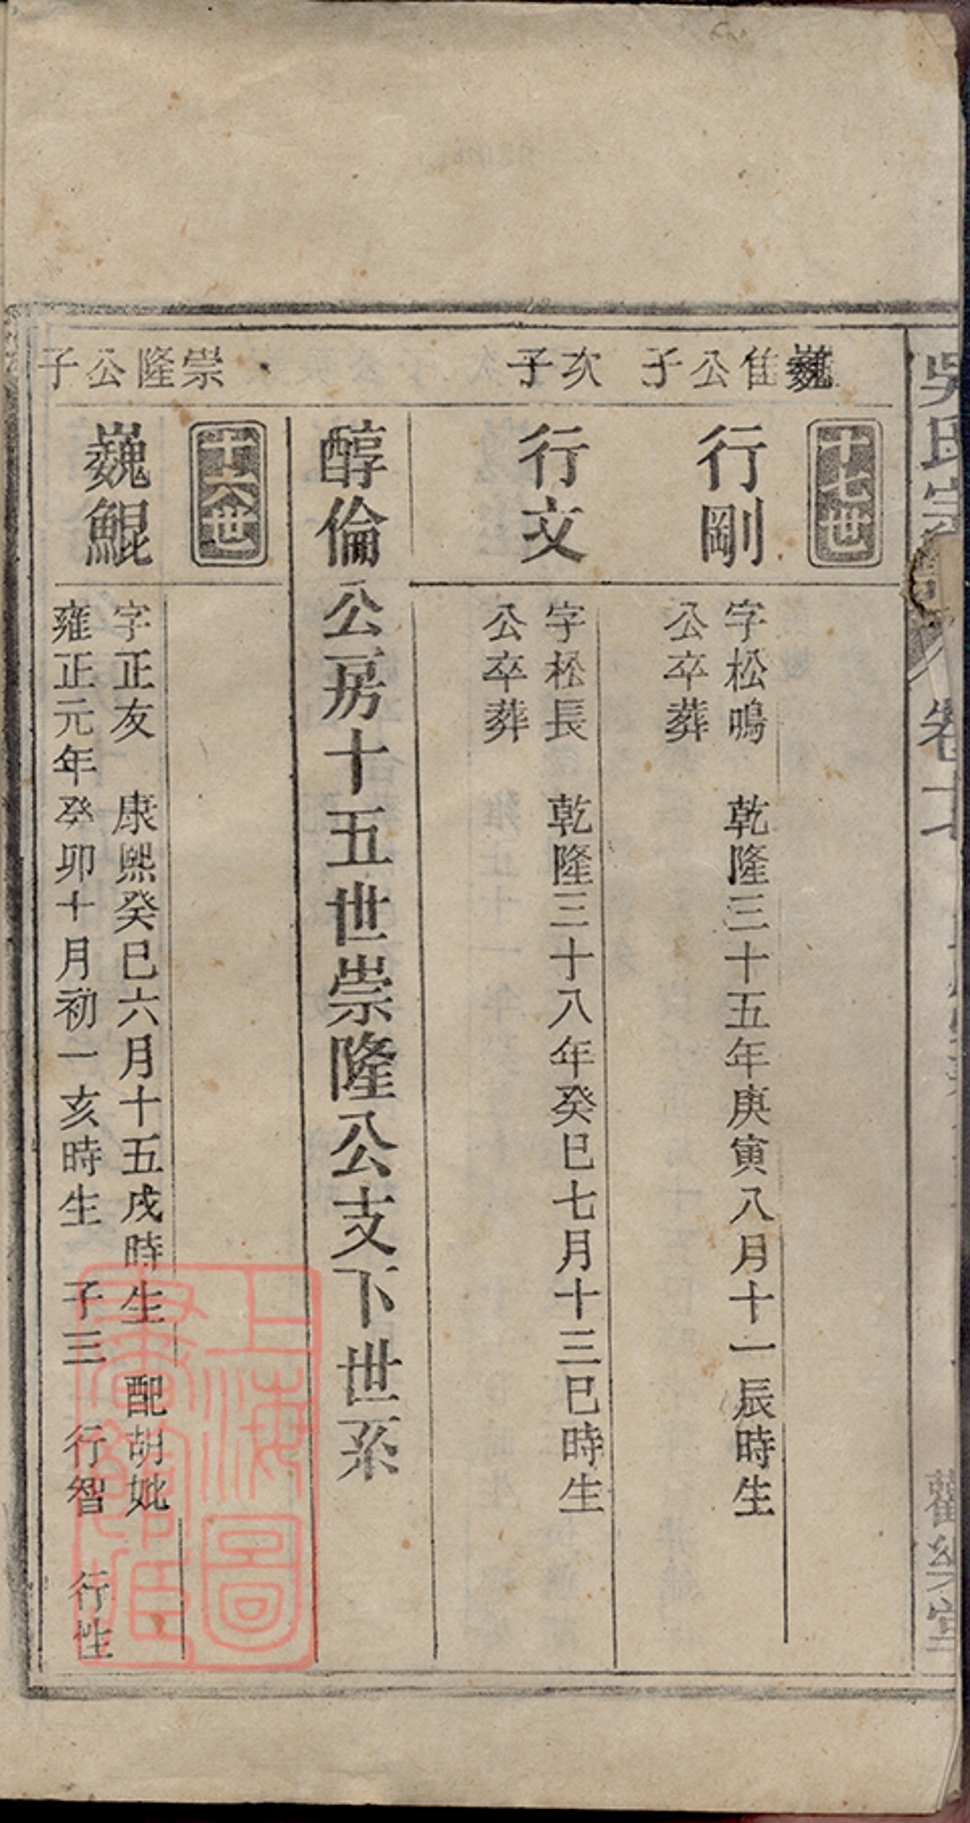 吳氏宗譜
卷十七
巍隹公子
十七世
行剛
字松鳴 乾隆三十五年庚寅八月十一辰時生
公卒葬
次子
行文
字松長 乾隆三十八年癸巳七月十三巳時生
公卒葬
醇倫公房十五世崇隆公支下世系
崇隆公子
十六世
巍鯤
字正友 康熙癸巳六月十五戌時生 配胡妣
雍正元年癸卯十月初一亥時生 子三 行智 行性
上海圖
書館藏